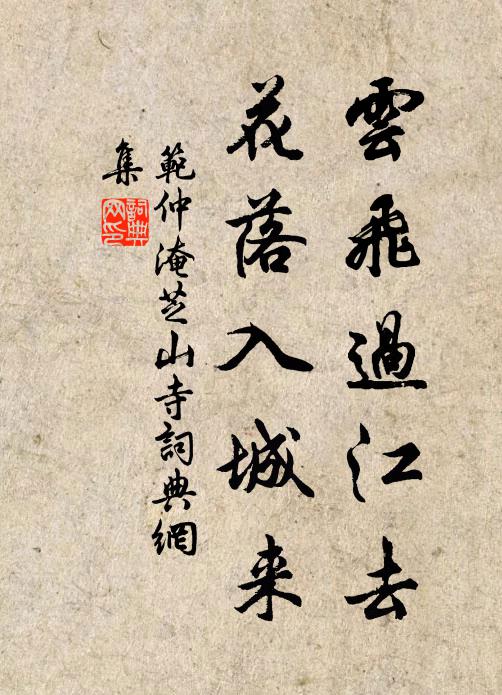 雲飛過江去
花落入城来
範仲淹芝山寺詞典網
集
詞典
网印